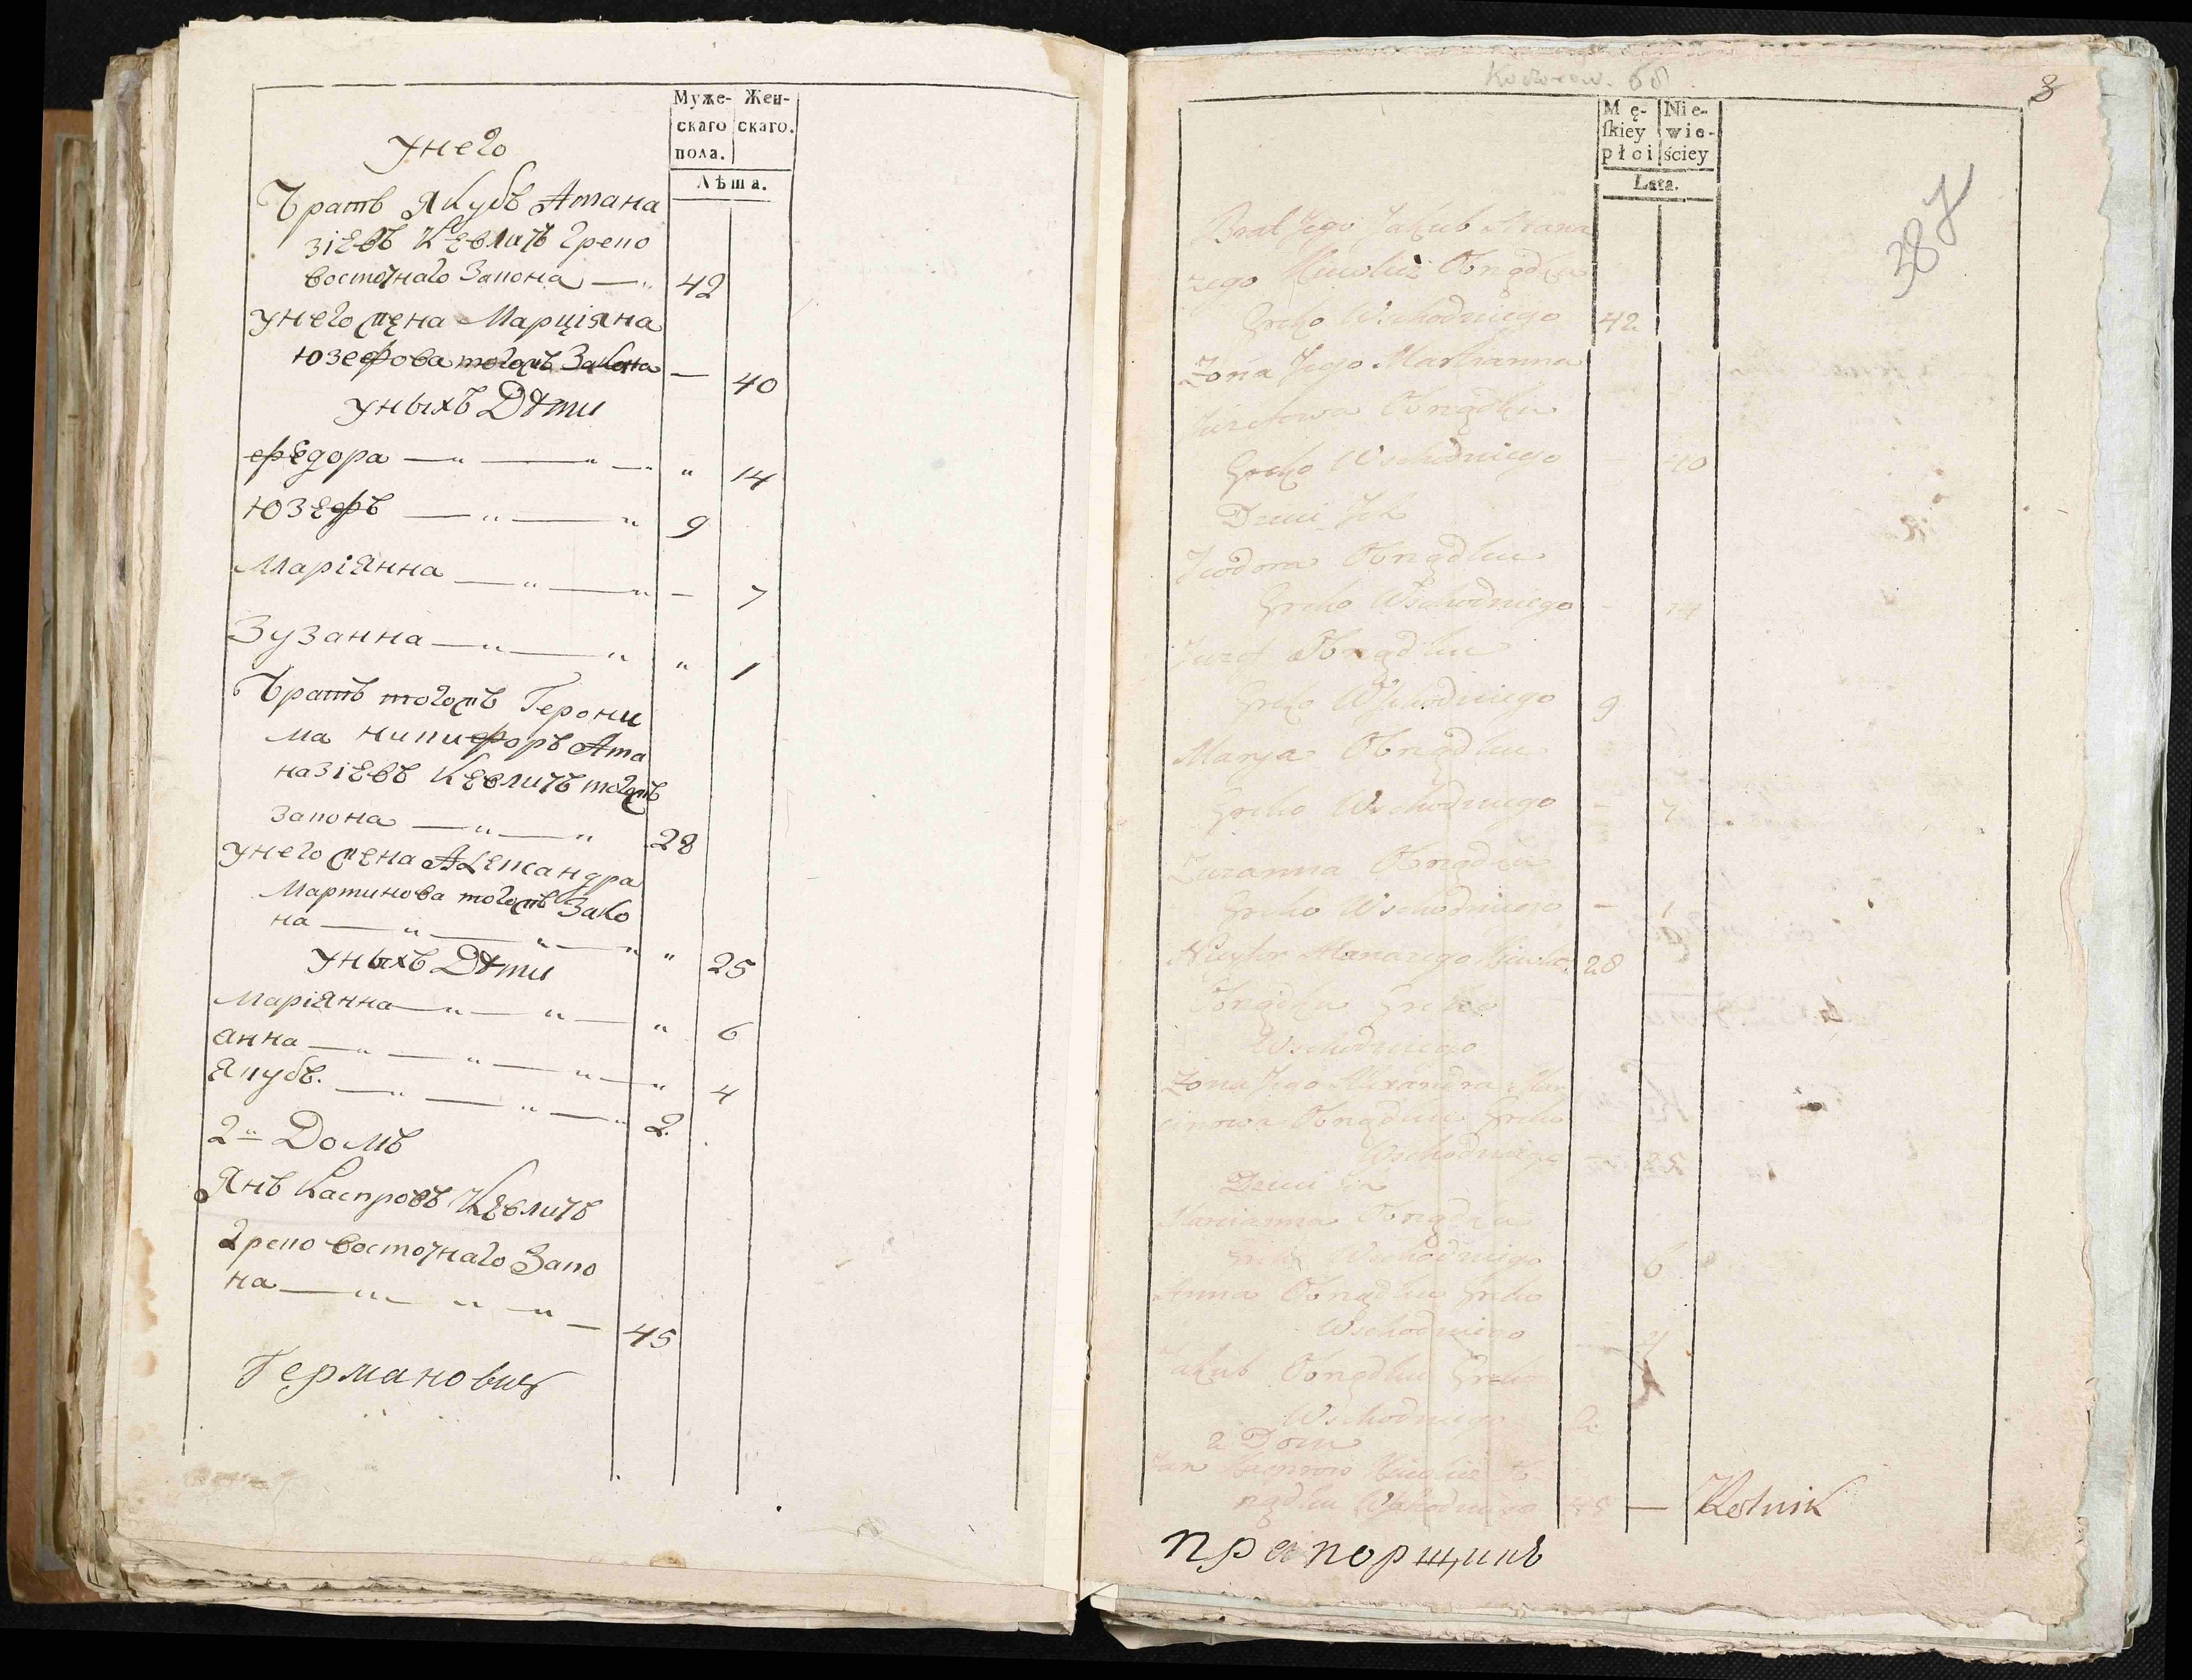 Муже- Жен-
скаго скаго.
пола.
Лѣта.
унего
Братъ Якубъ Атана
зіевъ Кевличъ Греко
восточнаго Закона — 42
унего жена Марціяна
Юзефова тогожъ Закона — 40
уныхъ Дѣти
Федора — " — " — " 14
Юзефъ — " — " 9
Маріянна — " — " — 7
Зузанна — " — " " 1
Братъ тогожъ Герони
ма Никифоръ Ата
назіевъ Кевличъ тогожъ
Закона — " — " 28
унего жена Александра
Мартинова тогожъ Зако
на — " — " — " " 25
уныхъ Дѣти
Маріянна — " — " — " 6
Анна — " — " — " — " 4
Якубъ. — " — " — " 2.
2й Домъ
Янъ Каспровъ Кевличъ
Греко восточнаго Зако
на — " — " — " — 45
Германович
Kotnow. 68
8
387
Mę- Nie-
ſkiey wie-
płci ściey
Lata.
Brat Jego Jakub Atana
zego Kiewlicz Obrządku
Greko Wschodniego 42
Zona Jego Marcianna
Juzefowa Obrządku
Greko Wschodniego — 40
Dzieci Ich
Teodora Obrządku
Greko Wschodniego — 14
Juzef Obrządku
Greko Wschodniego 9
Marya Obrządku
Greko Wschodniego — 7
Zuzanna Obrządku
Greko Wschodniego — 1
Nicyfor Atanazego Kiewlicz 28
Obrządku Greko
Wschodniego
Zona Jego Alexandra Mar
cinowa Obrządku Greko
Wschodniego — 25
Dzieci Ich
Marcianna Obrządku
Greko Wschodniego 6
Anna Obrządku Greko
Wschodniego — 4
Jakub Obrządku Greko
Wschodniego 2
2 Dom
Jan Kasprow Kiewlicz Ob
rządku Wschodniego 45 — Rolnik
прапорщикъ